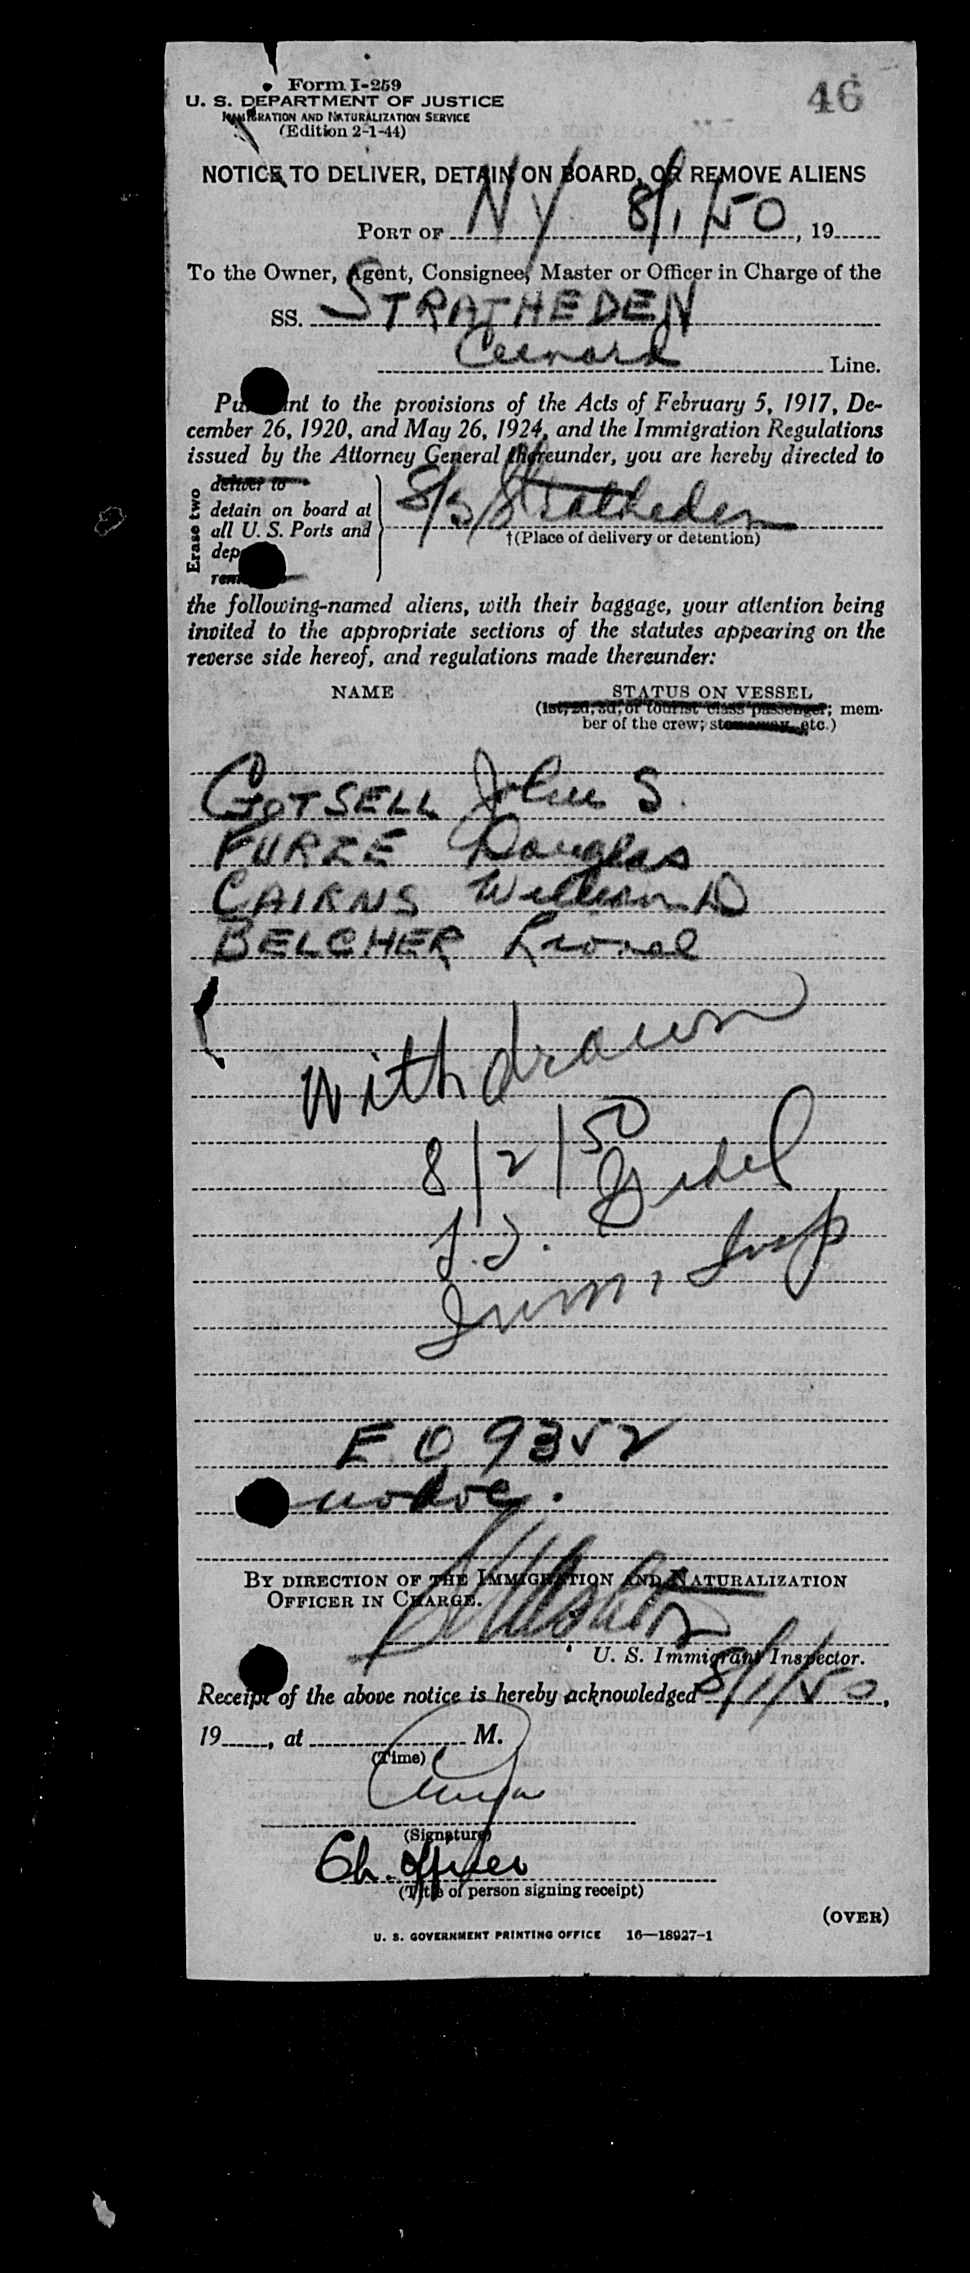 Form I-259
46
U. S. DEPARTMENT OF JUSTICE
IMMIGRATION AND NATURALIZATION SERVICE
(Edition 2-1-44)
NOTICE TO DELIVER, DETAIN ON BOARD, OR REMOVE ALIENS
PORT OF NY 8/1/50, 19
To the Owner, Agent, Consignee, Master or Officer in Charge of the
SS. STRATHEDEN
Cunard Line.
Pursuant to the provisions of the Acts of February 5, 1917, De-
cember 26, 1920, and May 26, 1924, and the Immigration Regulations
issued by the Attorney General thereunder, you are hereby directed to
Erase two
deliver to
detain on board at
all U. S. Ports and
SS Stratheden
†(Place of delivery or detention)
the following-named aliens, with their baggage, your attention being
invited to the appropriate sections of the statutes appearing on the
reverse side hereof, and regulations made thereunder:
NAME STATUS ON VESSEL
(1st, 2d, 3d, or tourist class passenger; mem-
ber of the crew; stowaway, etc.)
GOTSELL John S.
FURZE Douglas
CAIRNS William D
BELCHER Lionel
Withdrawn
8/2/50
Imm. Insp
E.O. 9352
no doc.
BY DIRECTION OF THE IMMIGRATION AND NATURALIZATION
OFFICER IN CHARGE.
U. S. Immigrant Inspector.
Receipt of the above notice is hereby acknowledged 8/1/50,
19, at M.
(Time)
(Signature)
Ch. Officer
(Title of person signing receipt)
(OVER)
U. S. GOVERNMENT PRINTING OFFICE 16—18927-1